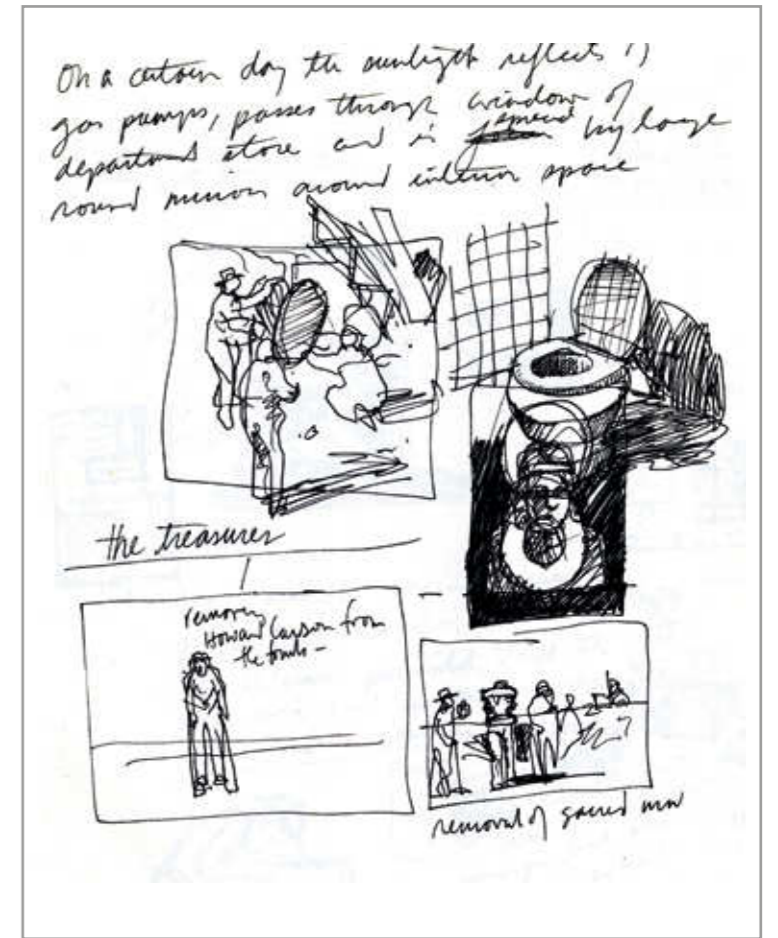 On a certain day the sunlight reflects off
gas pumps, passes through window of
department store and is spread by large
round mirrors around interior space
the treasures
removing
Howard Carson from
the tomb -
removal of sacred urn